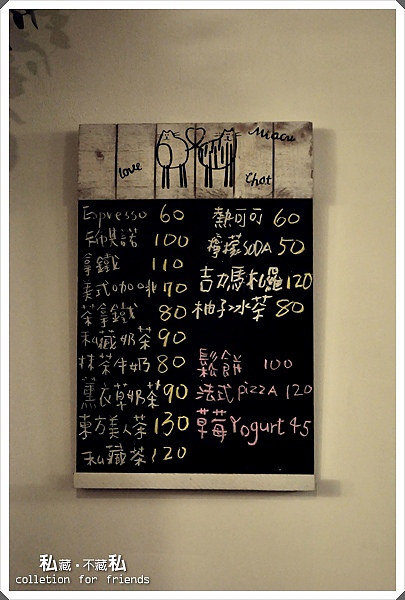 Love
Miacu
Chat
Espresso 60
卡布其諾 100
拿鐵 110
美式咖啡 70
茶拿鐵 80
私藏奶茶 90
抹茶牛奶 80
薰衣草奶茶 90
東方美人茶 130
私藏茶 120
熱可可 60
檸檬SODA 50
吉力馬札羅 120
柚子冰茶 80
鬆餅 100
法式pizzA 120
草莓Yogurt 45
私藏・不藏私
colletion for friends